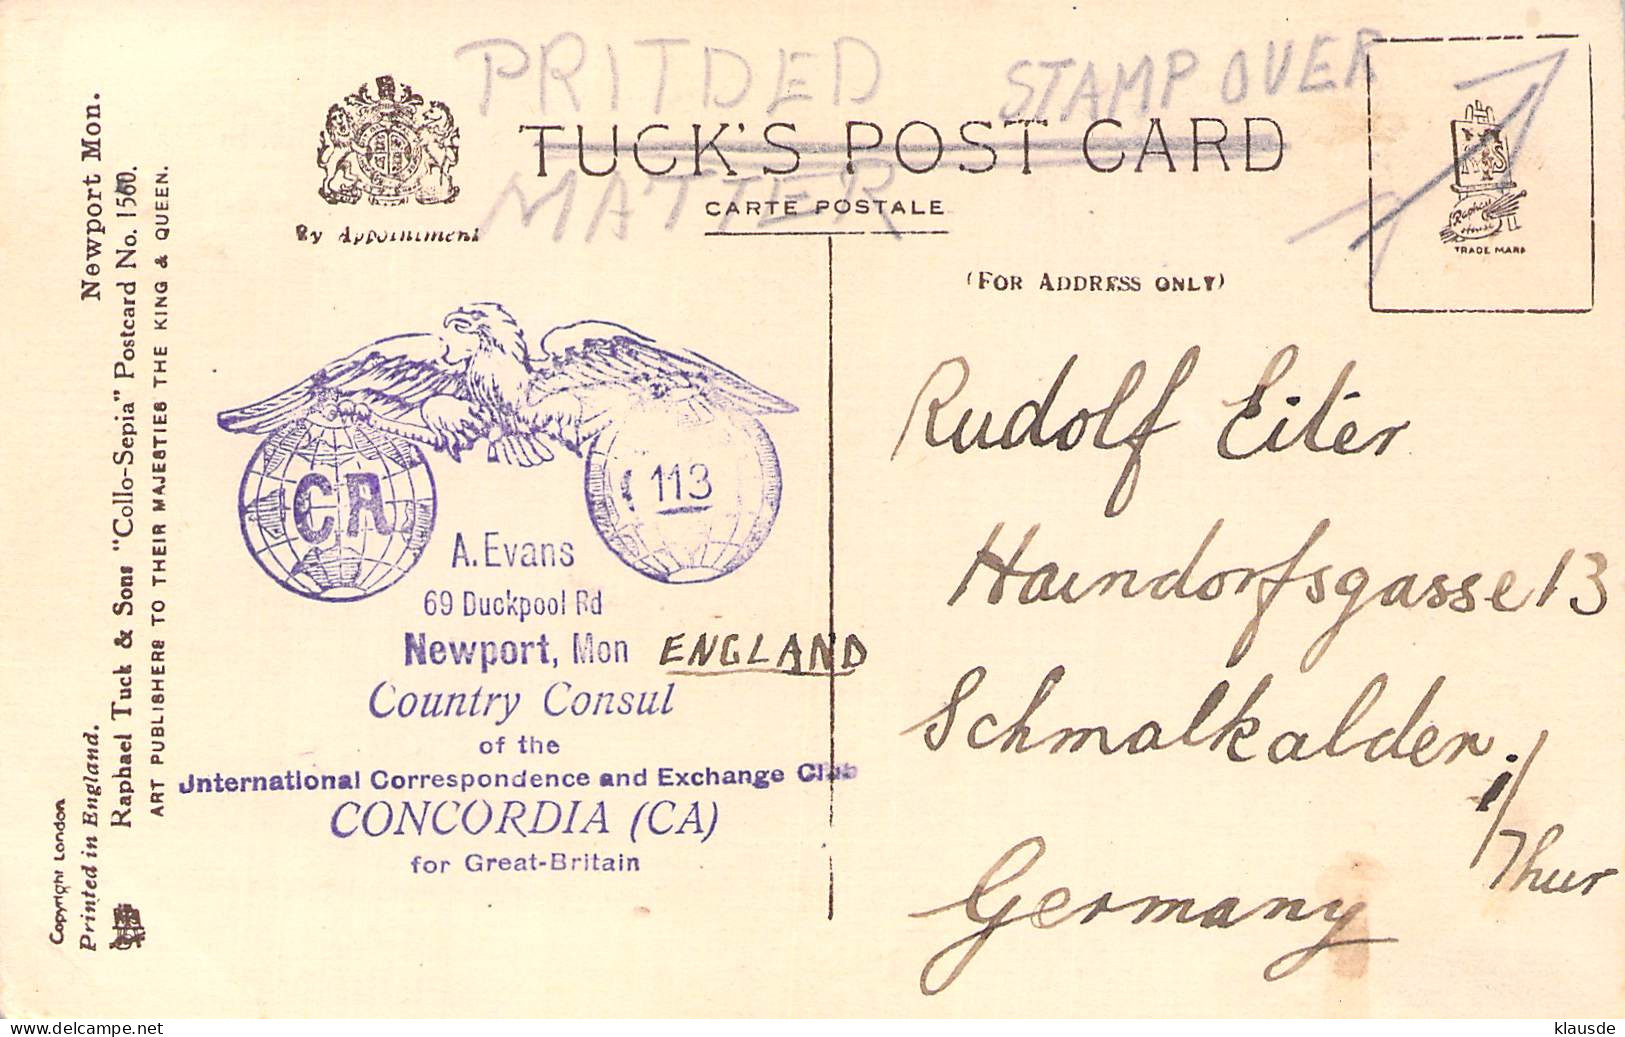 PRITDED STAMP OVER
TUCK'S POST CARD
MATTER
CARTE POSTALE
By Appointment
(FOR ADDRESS ONLY)
Raphael
House
TRADE MARK
Newport Mon.
Raphael Tuck & Sons "Collo-Sepia" Postcard No. 1560.
ART PUBLISHERS TO THEIR MAJESTIES THE KING & QUEEN.
Printed in England.
Copyright London
CA
113
A. Evans
69 Duckpool Rd
Newport, Mon ENGLAND
Country Consul
of the
Jnternational Correspondence and Exchange Club
CONCORDIA (CA)
for Great-Britain
Rudolf Eiter
Haindorfsgasse 13
Schmalkalden.
i/Thur
Germany
klausde